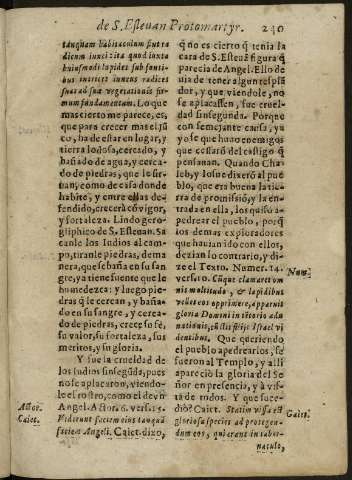 de S. Estevan Protomartyr. 240
tanquam habitaculum sint radicum
huiusmodi lapides sub sentibus
firmum fundamentum. Lo que
mas cierto me parece, es,
que para crecer mas el jũco
, ha de estar en lugar, y
tierra lodosa, cercado, y
bañado de agua, y cercado
de piedras, que le sirban,
como de casa donde
habite, y entre ellas defendido,
crecerà cõ vigor,
y fortaleza. Lindo geroglíphico
de S. Estevan. Sacanle
los Iudios al campo,
tiranle piedras, de manera,
que se baña en su sangre,
ya tiene fuente que le
humedezca: y luego piedras
q̃ le cercan, y bañado
en su sangre, y cercado
de piedras, crece su fè,
su valor, su fortaleza, sus
meritos, y su gloria.
Y fue la crueldad de
los Iudios sin segũda, pues
no se aplacaron, viendole
el rostro, como el de vn
Angel. Actor. 6. vers. 15.
Viderunt faciem eius tanquã
faciem Angeli. Caiet. dixo,
Actor.
Caiet.
q̃ no es cierto q̃ tenia la
cara de S. Estevã figura q̃
parecia de Angel. Ello devia
de tener algun resplãdor,
y que, viendole, no
se aplacassen, fue crueldad
sin segunda. Porque
con semejante causa, ya
yo se que huvo enemigos
que cessaron del castigo q̃
pensavan. Quando Chaleb,
y Iosue dixerõ al pueblo,
que era buena la tierra
de promissiõ, y la entrada
en ella, los quiso apedrear
el pueblo, porq̃
los demas exploradores
que hauian ido con ellos,
dezian lo contrario, y dize
el Texto. Numer. 14.
verso 10. Cũque clamaret omnis
multitudo, & lapidibus
vellet eos opprimere, apparuit
gloria Domini in
cũctis filijs Israel videntibus.
Que queriendo
el pueblo apedrearlos, se
fueron al Templo, y alli
apareciò la gloria del Señor
en presencia, y à vista
de todos. Y que sucediò?
Caiet. Statim visa est
gloriosa species ad protegendum
eos, quierant in tabernaculo,
Num.
Caiet.